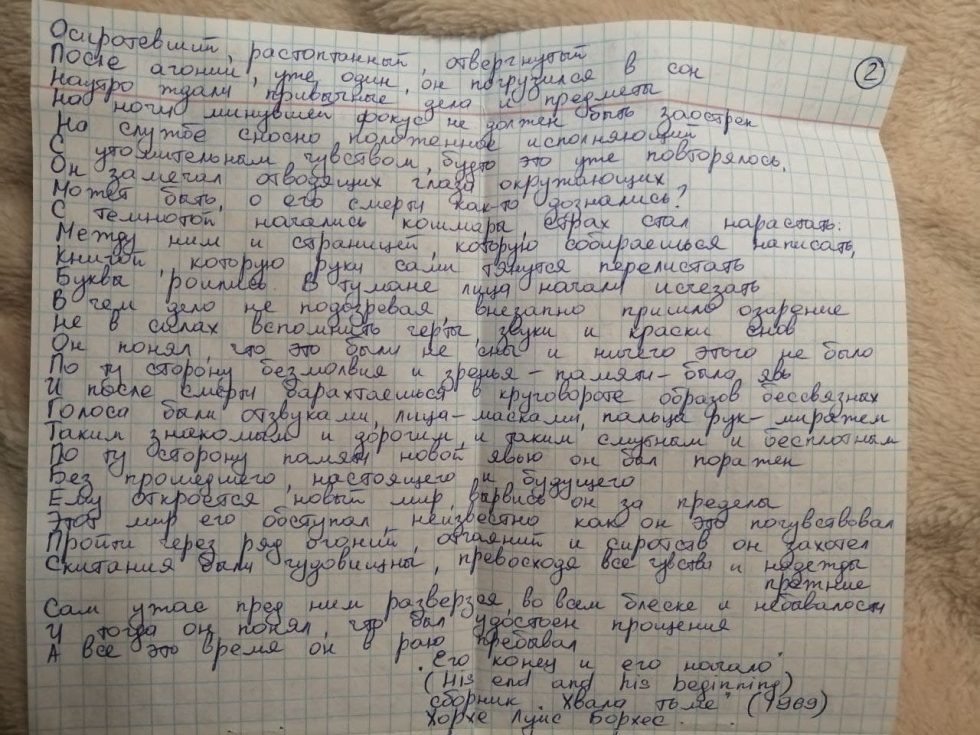 Осиротевший, растоптанный, отвергнутый
После агоний, уже один, он погрузился в сон
Наутро ждали привычные дела и предметы
②
На ночи минувшей фокус не должен быть заострен
На службе сносно положенное исполняющий
С утомительным чувством, будто это уже повторялось,
Он замечал отводящих глаза окружающих
Может быть, о его смерти как-то дознались?
С темнотой начались кошмары, страх стал нарастать.
Между ним и страницей, которую собираешься написать,
Книгой, которую руки сами тянутся перелистать
Буквы роились. В тумане лица начали исчезать
В чем дело не подозревая, внезапно пришло озарение
Не в силах вспомнить черты, звуки и краски снов
Он понял, что это были не сны и ничего этого не было
По ту сторону безмолвия и зренья - памяти - была явь
И после смерти барахтаешься в круговороте образов бессвязных
Голоса были отзвуками, лица - масками, пальцы рук - миражем
Таким знакомым и дорогим, и таким смутным и бесплотным
По ту сторону памяти новой явью он был поражен
Без прошедшего, настоящего и будущего
Ему откроется новый мир, вырвись он за пределы
Этот мир его обступал, неизвестно как он это почувствовал
Пройти через ряд агоний, отчаяний и сиротств он захотел
Скитания были чудовищны, превосходя все чувства и надежды
прежние
Сам ужас пред ним разверзся, во всем блеске и небывалости
И тогда он понял, что был удостоен прощения
А все это время он в раю пребывал
"Его конец и его начало"
(His end and his beginning)
сборник "Хвала тьме" (1969)
Хорхе Луис Борхес